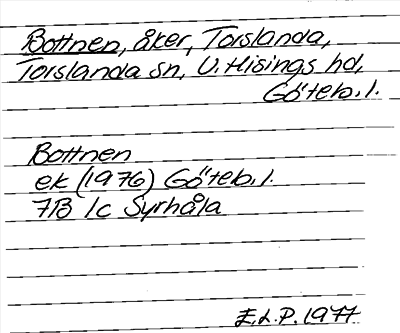 Bottnen, åker, Torslanda,
Torslanda sn, V. Hisings hd,
Göteb. l.
Bottnen
ek (1976) Göteb. l.
7B 1c Syrhåla
E.L.P. 1977